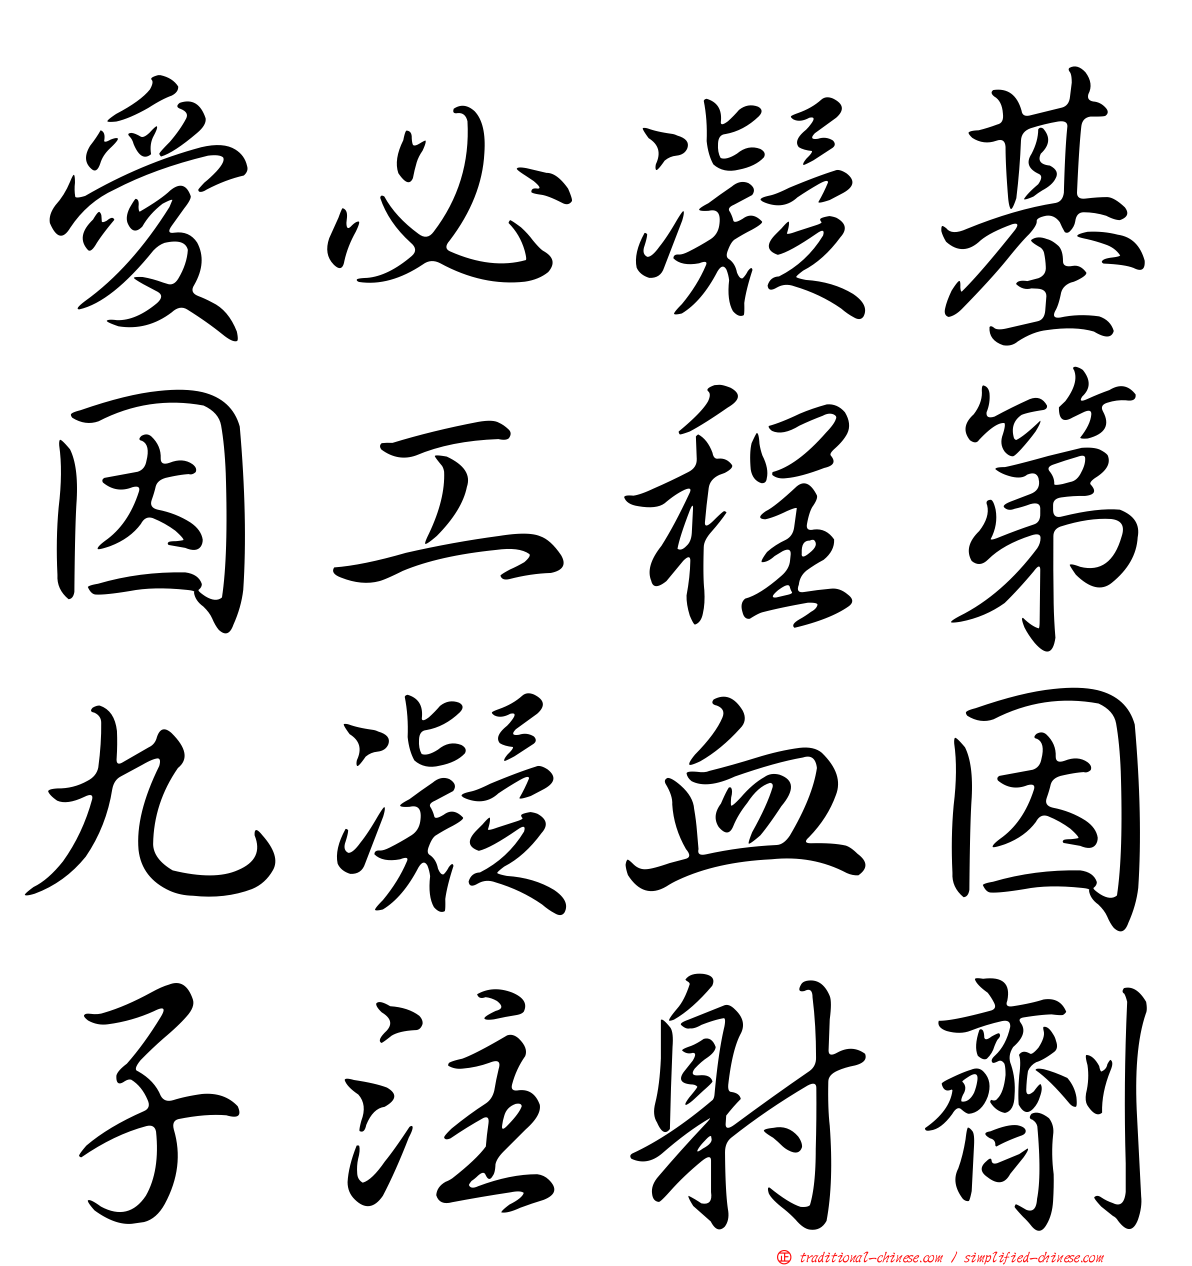 愛必凝基
因工程第
九凝血因
子注射劑
正 traditional-chinese.com / simplified-chinese.com